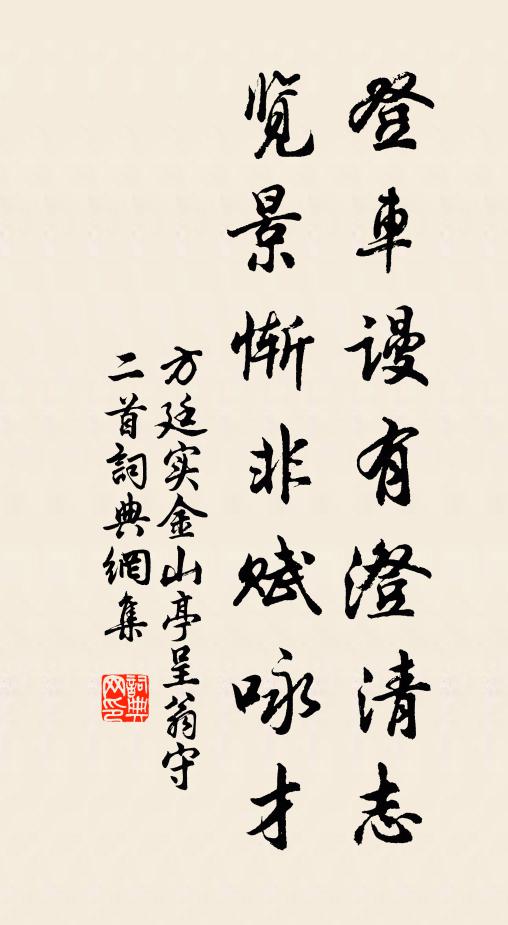 登車謾有澄清志
览景惭非赋咏才
方廷实金山亭呈翁守
二首詞典網集
詞典
网印